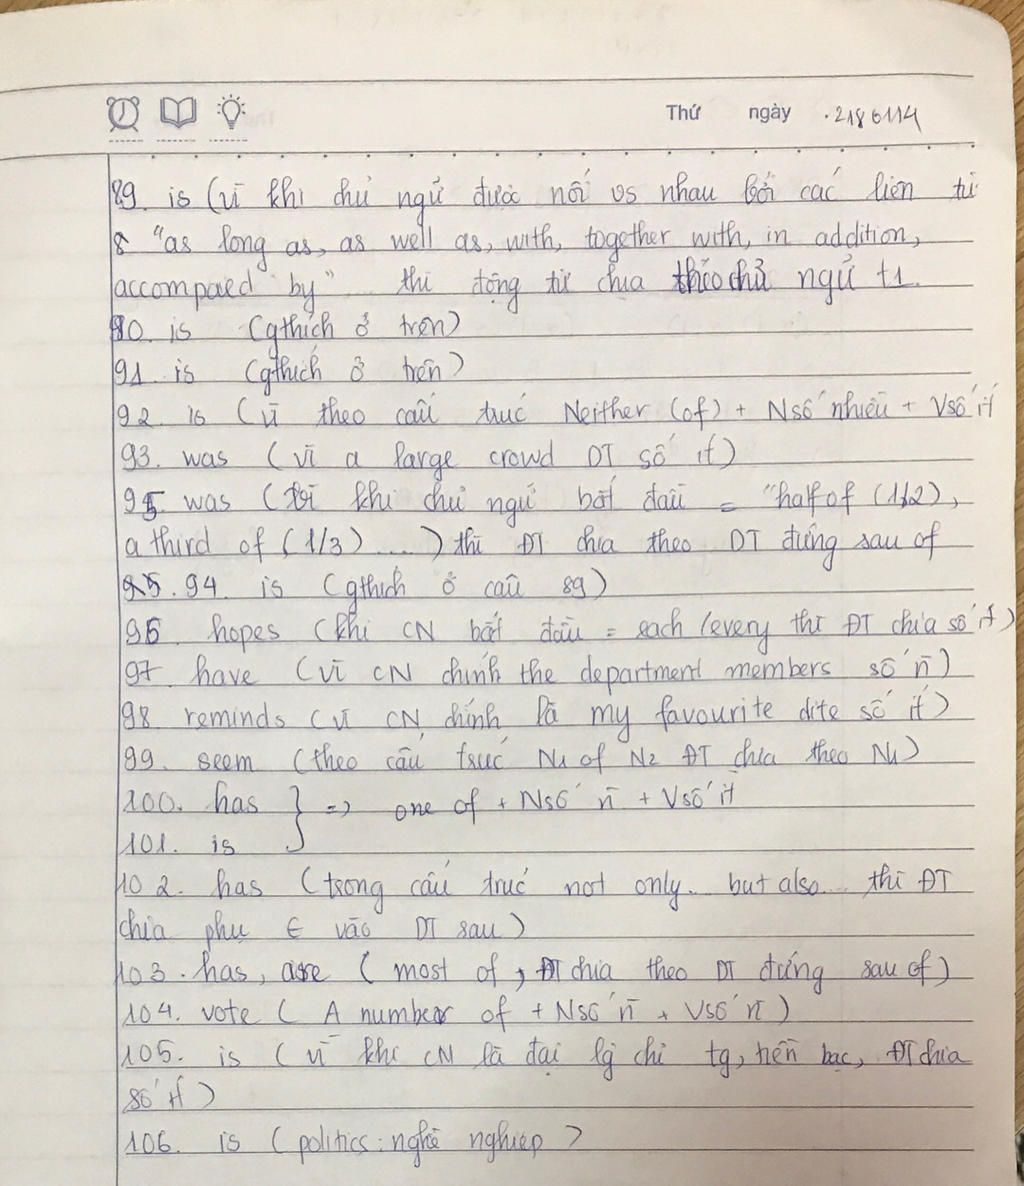 Thứ ngày . 2186114
89. is (vì khi chủ ngữ được nối vs nhau bởi các liên từ
8 "as long as, as well as, with, together with, in addition,
accompaied by" thì động từ chia theo chủ ngữ t1.
90. is (gthích ở trên)
91. is (gthích ở trên)
92. is (vì theo cấu trúc Neither (of) + Nsố nhiều + Vsố ít
93. was (vì a large crowd DT số ít)
95 was (vì khi chủ ngữ bắt đầu = "half of (1/2),
a third of (1/3) ....) thì ĐT chia theo DT đứng sau of
94. is (gthích ở câu 89)
96 hopes (khi CN bắt đầu = each/every thì ĐT chia số ít)
97. have (vì CN chính the department members số n̄)
98. reminds (vì CN chính là my favourite dite số ít)
99. seem (theo cấu trúc N1 of N2 ĐT chia theo N1)
100. has } => one of + Nsố n̄ + Vsố ít
101. is
102. has (trong cấu trúc not only.. but also... thì ĐT
chia phụ ∈ vào DT sau)
103. has, are (most of, ĐT chia theo DT đứng sau of)
104. vote (A number of + Nsố n̄ + Vsố n̄)
105. is (vì khi CN là đại lg chỉ tg, tiền bạc, ĐT chia
số ít)
106. is (politics: nghề nghiệp)